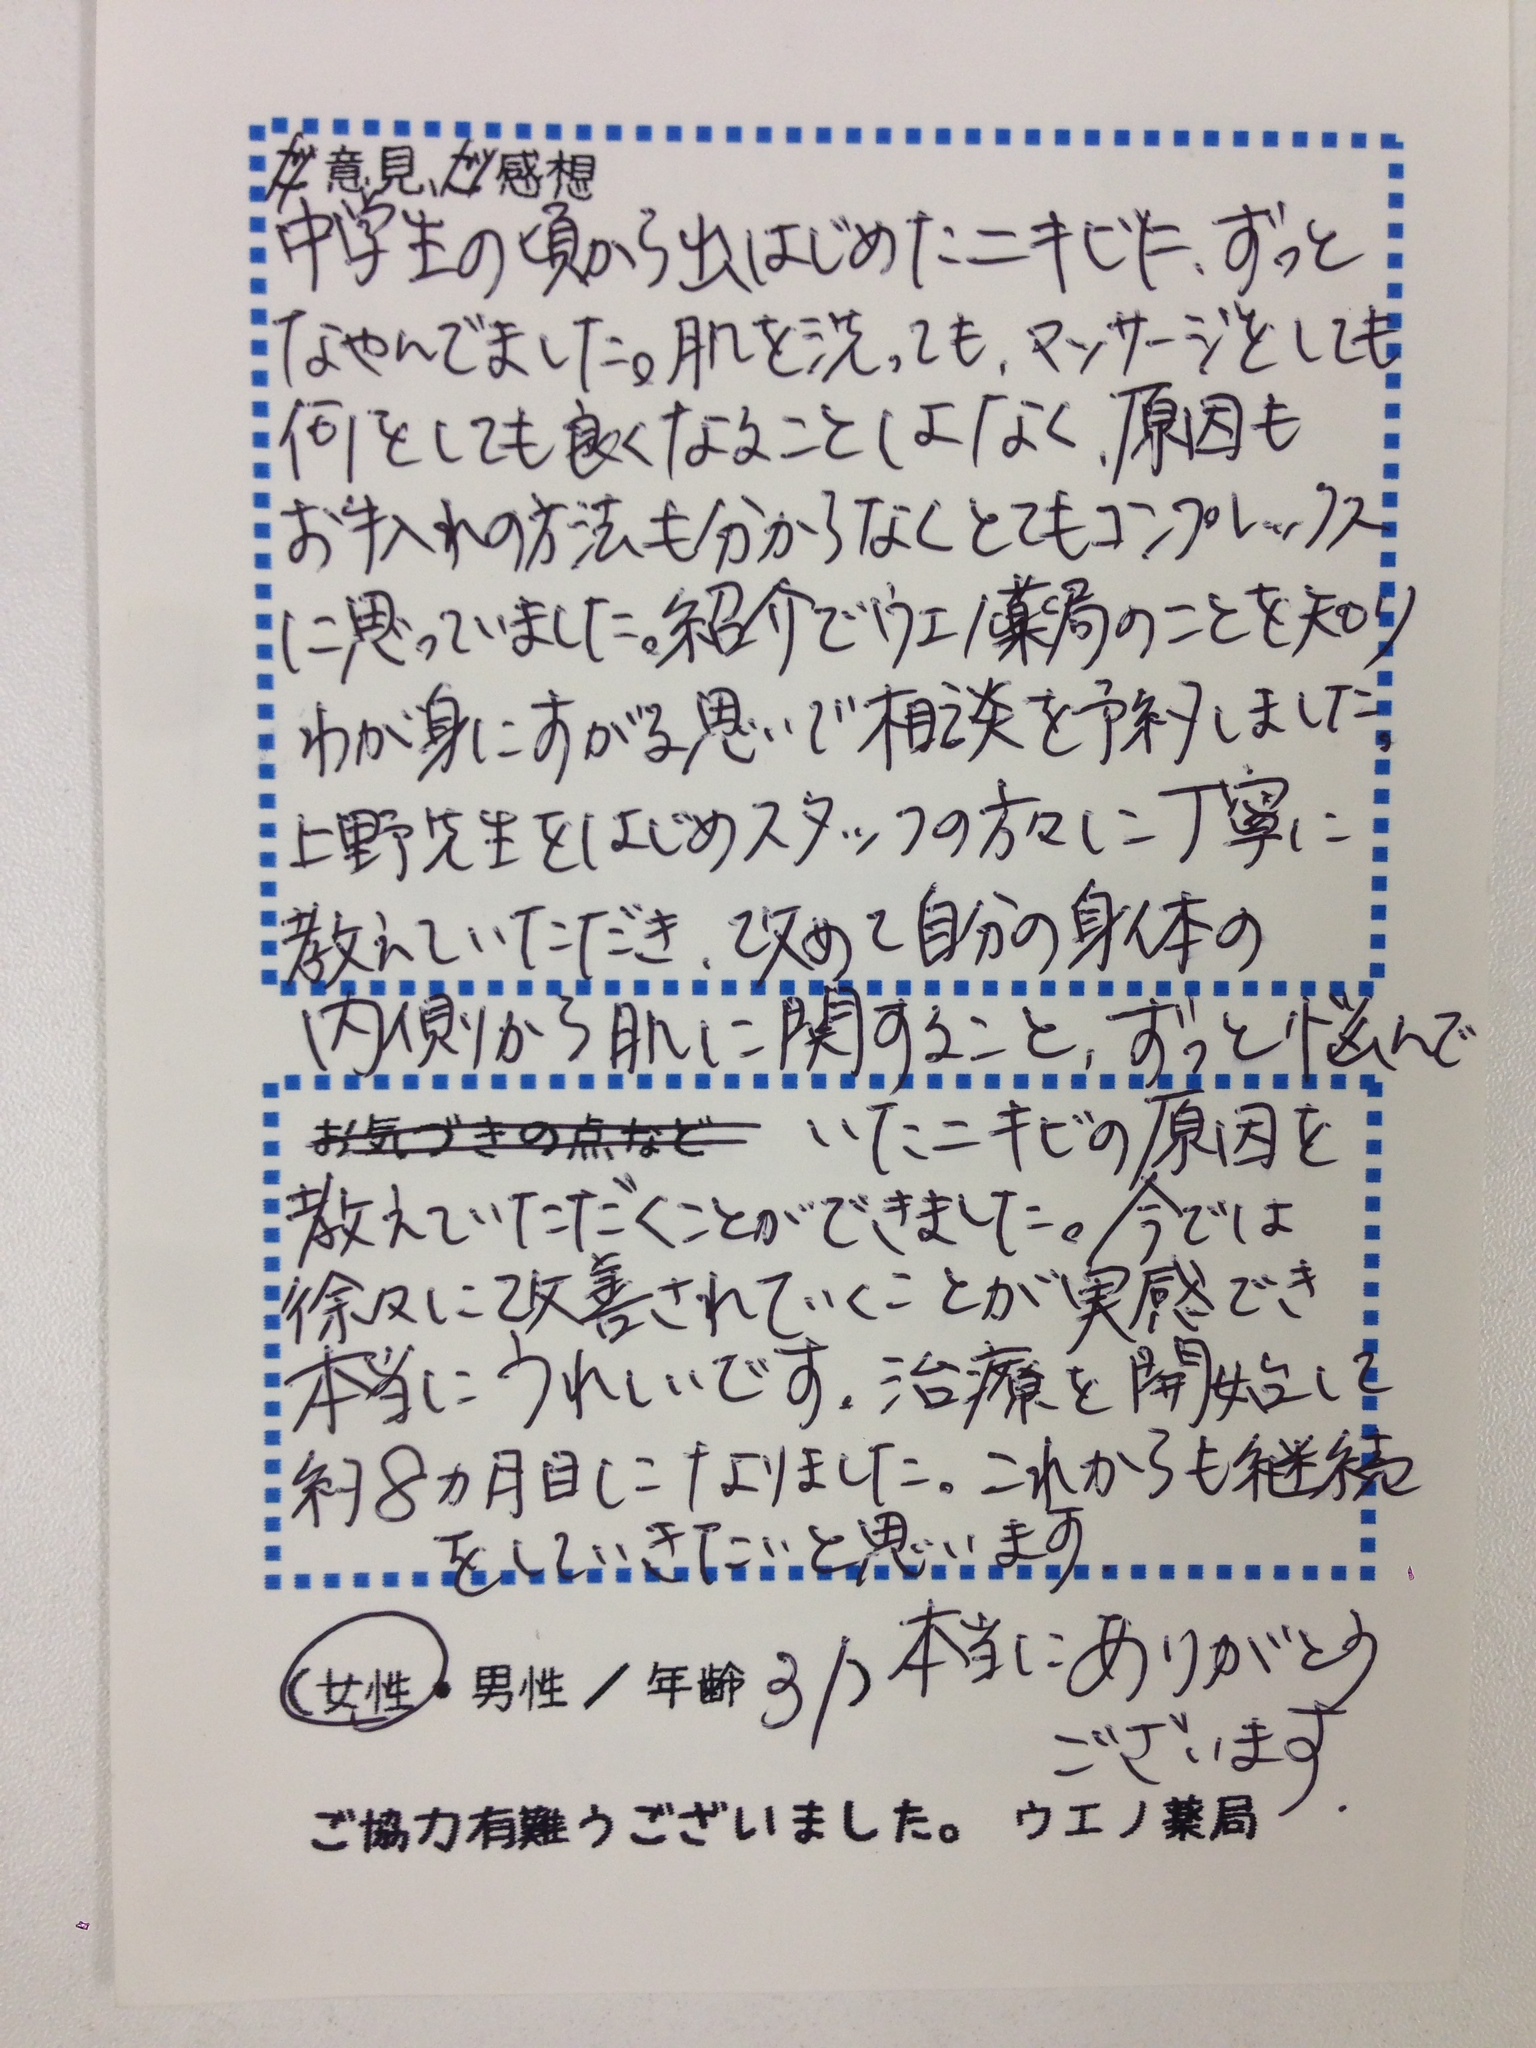 ご意見、ご感想
中学生の頃から出はじめたニキビに、ずっと
なやんでました。肌を洗っても、マッサージをしても
何をしても良くなることはなく、原因も
お手入れの方法も分からなくとてもコンプレックス
に思っていました。紹介でウエノ薬局のことを知り
わが身にすがる思いで相談を予約しました。
上野先生をはじめスタッフの方々に丁寧に
教えていただき、改めて自分の身体の
内側から肌に関すること、ずっと悩んで
お気づきの点など いたニキビの原因を
教えていただくことができました。今では
徐々に改善されていくことが実感でき
本当にうれしいです。治療を開始して
約8ヵ月目になりました。これからも継続
をしていきたいと思います。
女性・男性／年齢 31才 本当にありがとう
ございます.
ご協力有難うございました。 ウエノ薬局